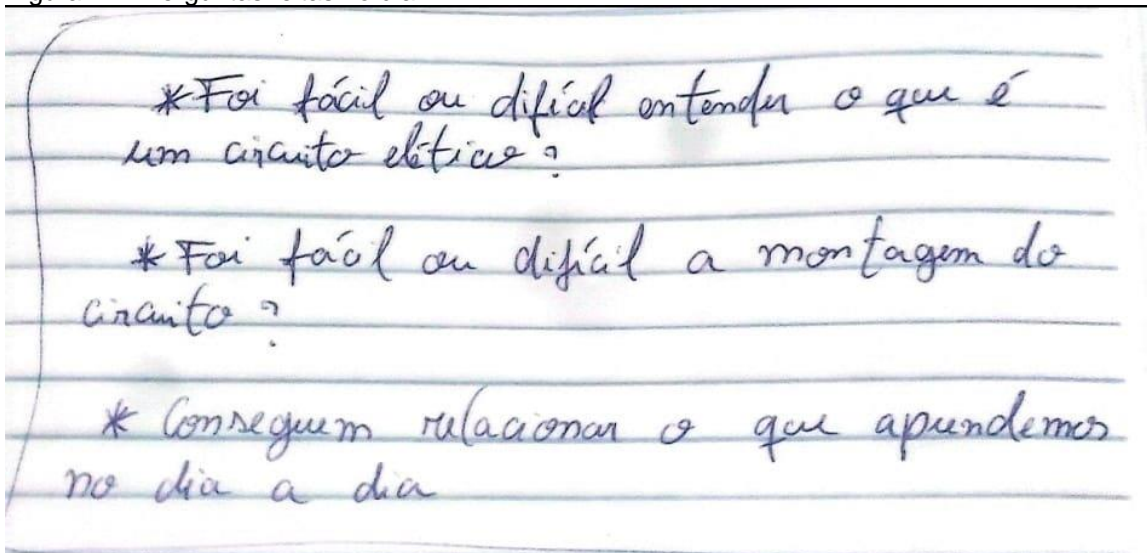 * Foi fácil ou difícil entender o que é
um circuito elético?
* Foi fácil ou difícil a montagem do
circuito?
* Conseguem relacionar o que aprendemos
no dia a dia